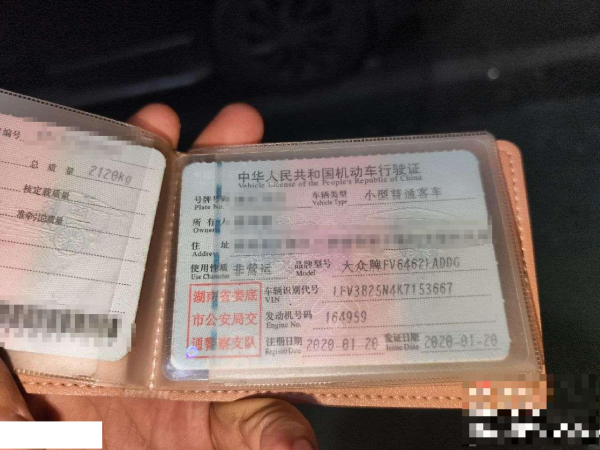 编号
总 质 量 2120kg
核定载质量
准牵引总质量
中华人民共和国机动车行驶证
Vehicle License of the People's Republic of China
号牌号码
Plate No.
车辆类型 小型普通客车
Vehicle Type
所有人
Owner
住 址
使用性质 非营运
Use Character
品牌型号 大众牌FV6462LADDG
Model
湖南省娄底
市公安局交
通警察支队
车辆识别代号 LFV3B25N4K7153667
VIN
发动机号码 164959
Engine No.
注册日期 2020-01-20
Register Date
发证日期 2020-01-20
Issue Date